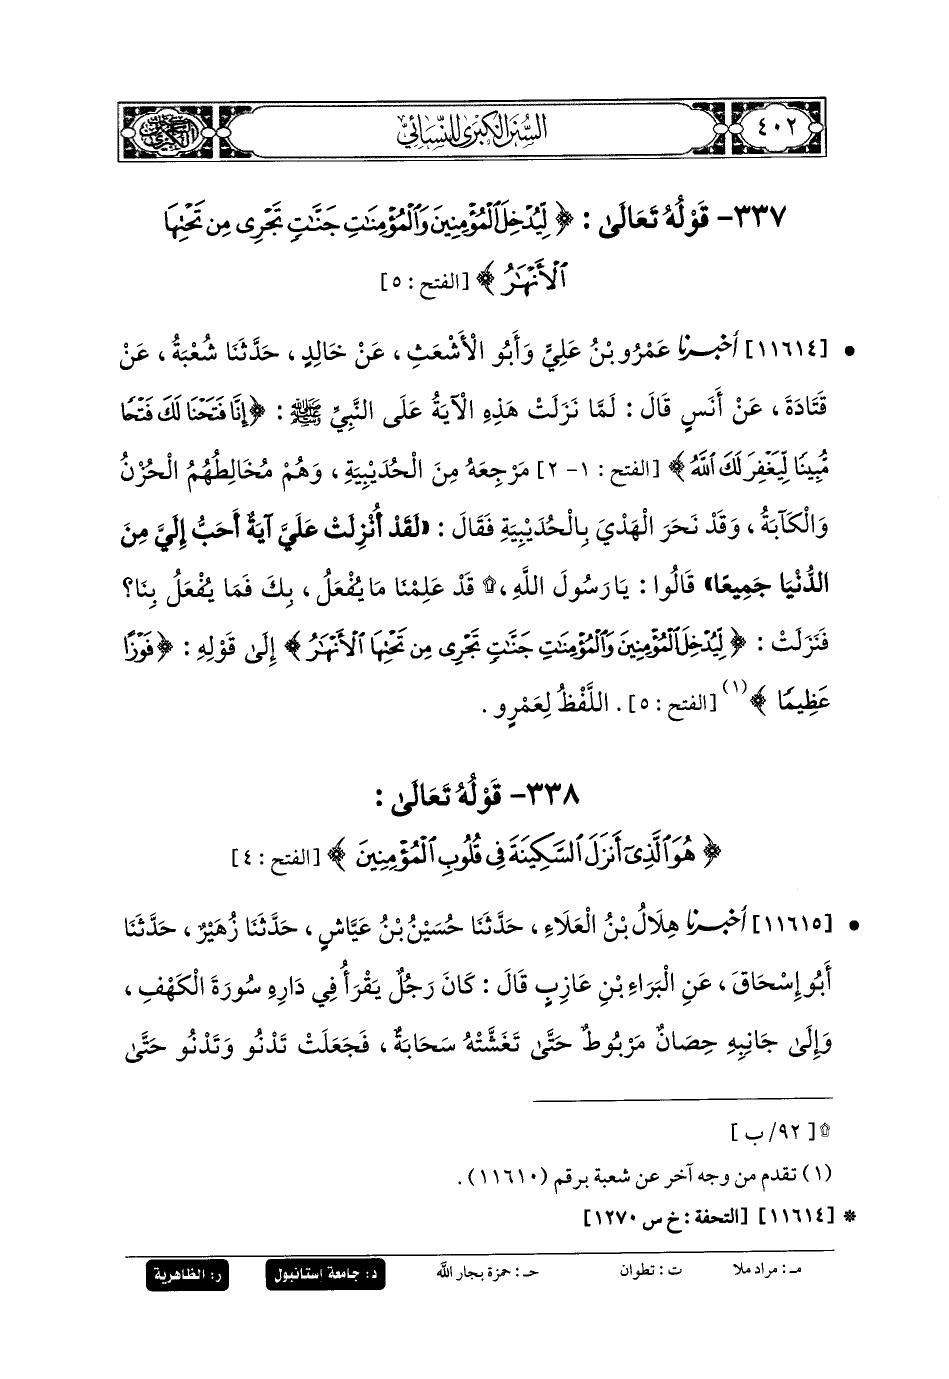 ٤٠٢
السُّنَنُ الكُبْرَى لِلنَّسَائِيِّ
٣٣٧- قَوْلُهُ تَعَالَىٰ : ﴿ لِّيُدْخِلَ ٱلْمُؤْمِنِينَ وَٱلْمُؤْمِنَٰتِ جَنَّٰتٍ تَجْرِى مِن تَحْتِهَا
ٱلْأَنْهَٰرُ ﴾ [الفتح : ٥]
• [١١٦١٤] أخبرنا عَمْرُو بْنُ عَلِيٍّ وَأَبُو الْأَشْعَثِ ، عَنْ خَالِدٍ ، حَدَّثَنَا شُعْبَةُ ، عَنْ
قَتَادَةَ ، عَنْ أَنَسٍ قَالَ : لَمَّا نَزَلَتْ هَذِهِ الْآيَةُ عَلَى النَّبِيِّ ﷺ : ﴿إِنَّا فَتَحْنَا لَكَ فَتْحًا
مُّبِينًا لِّيَغْفِرَ لَكَ ٱللَّهُ ﴾ [الفتح : ١- ٢] مَرْجِعَهُ مِنَ الْحُدَيْبِيَةِ ، وَهُمْ مُخَالِطُهُمُ الْحُزْنُ
وَالْكَآبَةُ ، وَقَدْ نَحَرَ الْهَدْيَ بِالْحُدَيْبِيَةِ فَقَالَ : «لَقَدْ أُنْزِلَتْ عَلَيَّ آيَةٌ أَحَبُّ إِلَيَّ مِنَ
الدُّنْيَا جَمِيعًا» قَالُوا : يَا رَسُولَ اللَّهِ ،۩ قَدْ عَلِمْنَا مَا يُفْعَلُ ، بِكَ فَمَا يُفْعَلُ بِنَا؟
فَنَزَلَتْ : ﴿ لِّيُدْخِلَ ٱلْمُؤْمِنِينَ وَٱلْمُؤْمِنَٰتِ جَنَّٰتٍ تَجْرِى مِن تَحْتِهَا ٱلْأَنْهَٰرُ ﴾ إِلَىٰ قَوْلِهِ : ﴿ فَوْزًا
عَظِيمًا ﴾(١) [الفتح : ٥] . اللَّفْظُ لِعَمْرٍو .
٣٣٨- قَوْلُهُ تَعَالَىٰ :
﴿ هُوَ ٱلَّذِىٓ أَنزَلَ ٱلسَّكِينَةَ فِى قُلُوبِ ٱلْمُؤْمِنِينَ ﴾ [الفتح : ٤]
• [١١٦١٥] أخبرنا هِلَالُ بْنُ الْعَلَاءِ ، حَدَّثَنَا حُسَيْنُ بْنُ عَيَّاشٍ ، حَدَّثَنَا زُهَيْرٌ ، حَدَّثَنَا
أَبُو إِسْحَاقَ ، عَنِ الْبَرَاءِ بْنِ عَازِبٍ قَالَ : كَانَ رَجُلٌ يَقْرَأُ فِي دَارِهِ سُورَةَ الْكَهْفِ ،
وَإِلَىٰ جَانِبِهِ حِصَانٌ مَرْبُوطٌ حَتَّىٰ تَغَشَّتْهُ سَحَابَةٌ ، فَجَعَلَتْ تَدْنُو وَتَدْنُو حَتَّىٰ
۩ [ ٩٢/ ب ]
(١) تقدم من وجه آخر عن شعبة برقم (١١٦١٠) .
* [١١٦١٤] [التحفة : خ س ١٢٧٠]
مـ : مراد ملا ت : تطوان حـ : حمزة بجار الله د: جامعة استانبول ر: الظاهرية